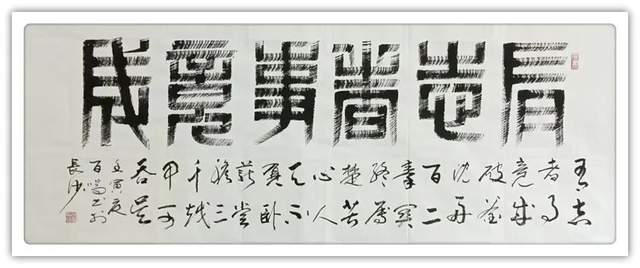 有志者事竟成
有志
者事
竟成
破釜
沈舟
百二
秦関
終屬
楚苦
心人
天不
負卧
薪嘗
膽三
千越
甲可
吞吴
壬寅夏
百
長沙